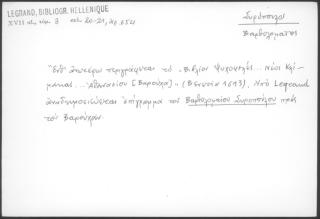 LEGRAND, BIBLIOGR. HELLENIQUE
XVII αἰ. τόμ. 3 σελ. 20-21, ἀρ. 654
Συρόπουλος
Βαρθολομαῖος
Ἐνθ' ἀνωτέρω περιγράφεται τό "Βιβλίον Ψυχοφελές... Νέος Κλί-
μακας... Ἀθανασίου [Βαρούχα]," (Βενετία 1693). Ὑπό Legrand
ἀναδημοσιεύεται ἐπίγραμμα τοῦ Βαρθολομαίου Συροπούλου πρός
τόν Βαρούχαν.